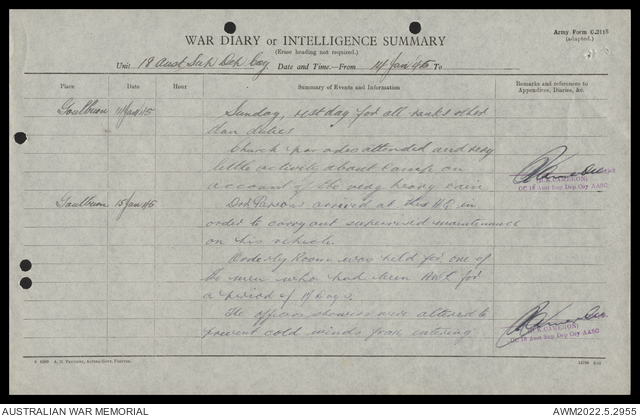 Army Form C.2118
(adapted.)
WAR DIARY or INTELLIGENCE SUMMARY
(Erase heading not required.)
Unit 18 Aust Sup Dep Coy. Date and Time—From 14 Jan 45 To
Place Date Hour Summary of Events and Information Remarks and references to Appendices, Diaries, &c.
Goulburn 14 Jan 45 Sunday, rest day for all ranks other
than duties
Church parades attended and very
little activity about camp on
account of the very heavy rain
(R.K. CAMERON)
OC 18 Aust Sup Dep Coy AASC
Goulburn 15 Jan 45 Dvr Parsons arrived at this H.Q. in
order to carry out supervised maintenance
on his vehicle.
Orderly Room was held for one of
the men who had been AWL for
a period of 17 days.
The officers showers were altered to
prevent cold winds from entering
CAMERON)
OC 18 Aust Sup Dep Coy AASC
AUSTRALIAN WAR MEMORIAL
AWM2022.5.2955